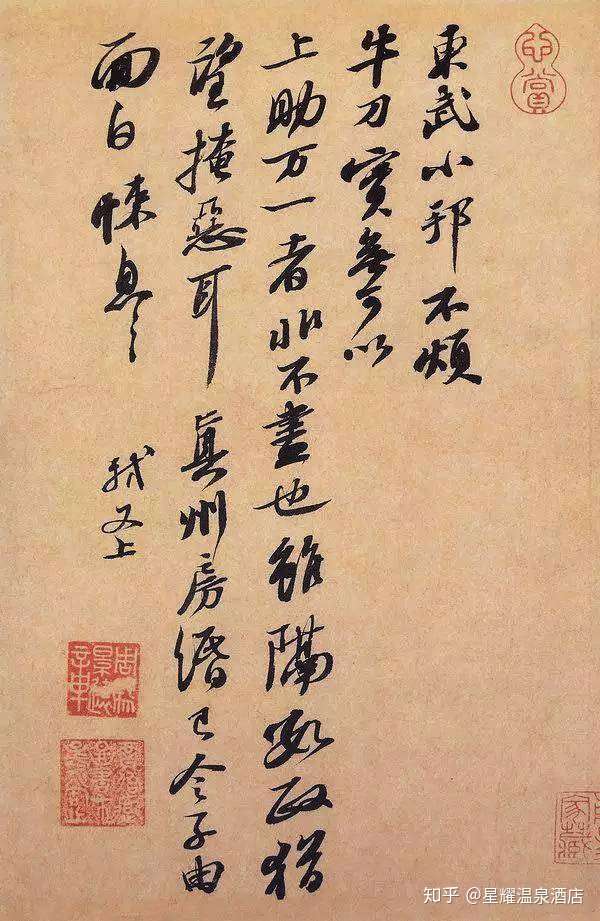 東武小邦不煩
牛刀實無可以
上助万一者非不盡也雖隔數政猶
望掩惡耳 真州房緡已令子由
面白悚息〻
軾又上
心賞
家藏
知乎 @星耀温泉酒店